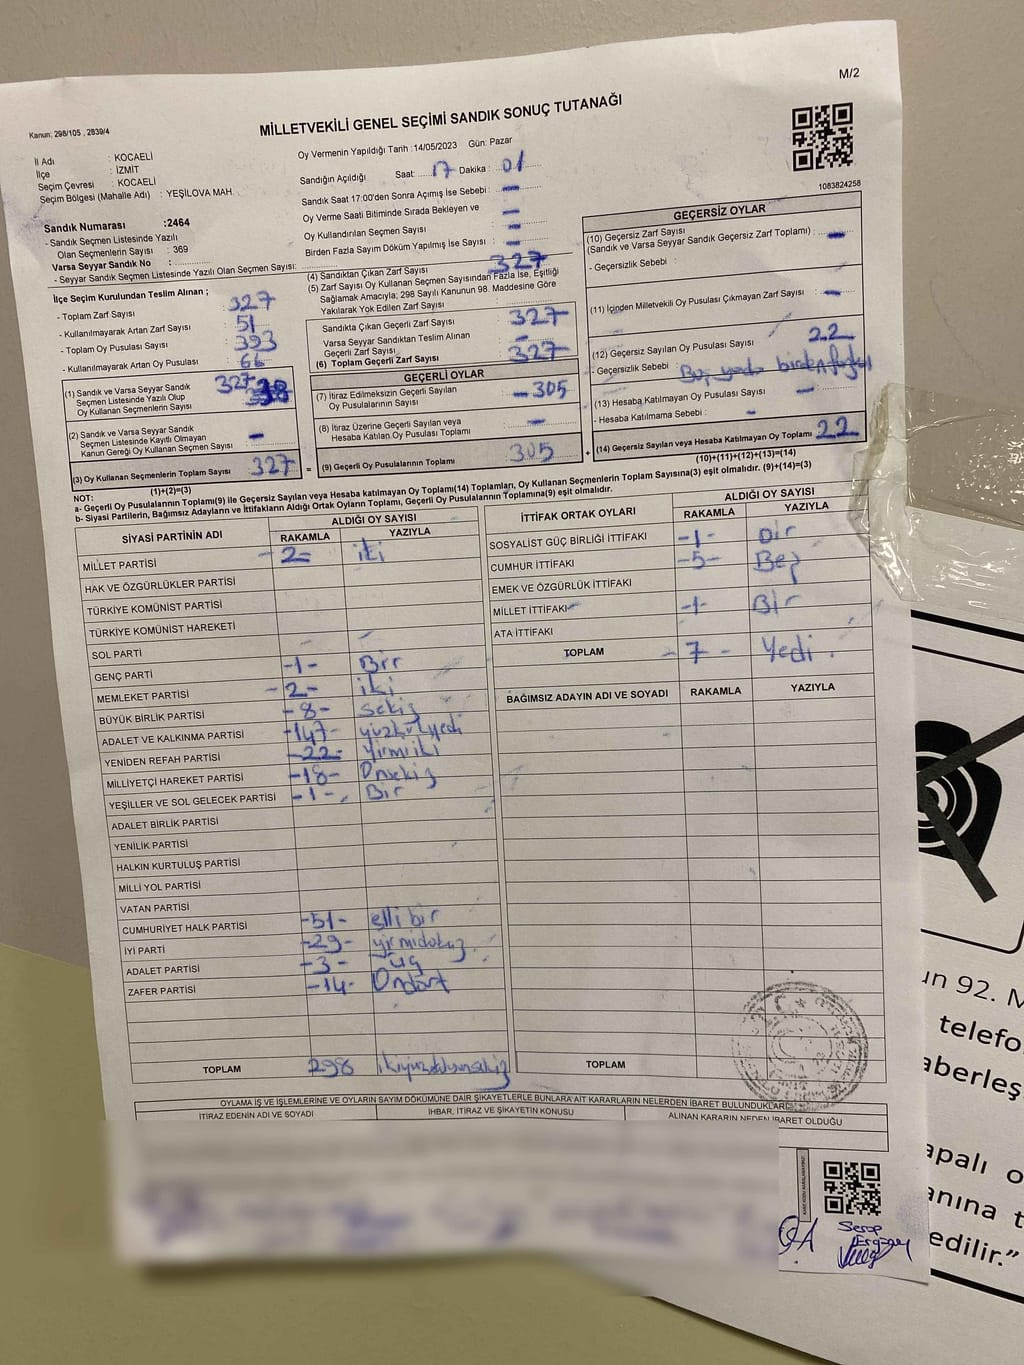 M/2
Kanun; 298/105 , 2839/4
MİLLETVEKİLİ GENEL SEÇİMİ SANDIK SONUÇ TUTANAĞI
İl Adı : KOCAELİ
İlçe : İZMİT
Seçim Çevresi : KOCAELİ
Seçim Bölgesi (Mahalle Adı) : YEŞİLOVA MAH.
Sandık Numarası :2464
- Sandık Seçmen Listesinde Yazılı
Olan Seçmenlerin Sayısı : 369
Varsa Seyyar Sandık No :
- Seyyar Sandık Seçmen Listesinde Yazılı Olan Seçmen Sayısı:
Oy Vermenin Yapıldığı Tarih :14/05/2023 Gün: Pazar
Sandığın Açıldığı Saat: 17 Dakika : 01
Sandık Saat 17:00'den Sonra Açımış İse Sebebi : -
Oy Verme Saati Bitiminde Sırada Bekleyen ve -
Oy Kullandırılan Seçmen Sayısı : -
Birden Fazla Sayım Döküm Yapılmış İse Sayısı : -
1083824258
İlçe Seçim Kurulundan Teslim Alınan ;
- Toplam Zarf Sayısı : 327
- Kullanılmayarak Artan Zarf Sayısı : 51
- Toplam Oy Pusulası Sayısı : 393
- Kullanılmayarak Artan Oy Pusulası : 66
(1) Sandık ve Varsa Seyyar Sandık
Seçmen Listesinde Yazılı Olup
Oy Kullanan Seçmenlerin Sayısı 327
(2) Sandık ve Varsa Seyyar Sandık
Seçmen Listesinde Kayıtlı Olmayan
Kanun Gereği Oy Kullanan Seçmen Sayısı -
(3) Oy Kullanan Seçmenlerin Toplam Sayısı 327 =
(1)+(2)=(3)
(4) Sandıktan Çıkan Zarf Sayısı 327
(5) Zarf Sayısı Oy Kullanan Seçmen Sayısından Fazla İse, Eşitliği
Sağlamak Amacıyla; 298 Sayılı Kanunun 98. Maddesine Göre
Yakılarak Yok Edilen Zarf Sayısı :
Sandıkta Çıkan Geçerli Zarf Sayısı : 327
Varsa Seyyar Sandıktan Teslim Alınan
Geçerli Zarf Sayısı : -
(6) Toplam Geçerli Zarf Sayısı 327
GEÇERLİ OYLAR
(7) İtiraz Edilmeksizin Geçerli Sayılan
Oy Pusulalarının Sayısı - 305
(8) İtiraz Üzerine Geçerli Sayılan veya
Hesaba Katılan Oy Pusulası Toplamı -
(9) Geçerli Oy Pusulalarının Toplamı 305 +
GEÇERSİZ OYLAR
(10) Geçersiz Zarf Sayısı
(Sandık ve Varsa Seyyar Sandık Geçersiz Zarf Toplamı) : -
- Geçersizlik Sebebi :
(11) İçinden Milletvekili Oy Pusulası Çıkmayan Zarf Sayısı : -
(12) Geçersiz Sayılan Oy Pusulası Sayısı : 22
- Geçersizlik Sebebi Boş yada birden fazla
(13) Hesaba Katılmayan Oy Pusulası Sayısı : -
- Hesaba Katılmama Sebebi : -
(14) Geçersiz Sayılan veya Hesaba Katılmayan Oy Toplamı 22
(10)+(11)+(12)+(13)=(14)
NOT:
a- Geçerli Oy Pusulalarının Toplamı(9) ile Geçersiz Sayılan veya Hesaba katılmayan Oy Toplamı(14) Toplamları, Oy Kullanan Seçmenlerin Toplam Sayısına(3) eşit olmalıdır. (9)+(14)=(3)
b- Siyasi Partilerin, Bağımsız Adayların ve İttifakların Aldığı Ortak Oyların Toplamı, Geçerli Oy Pusulalarının Toplamına(9) eşit olmalıdır.
SİYASİ PARTİNİN ADI ALDIĞI OY SAYISI
RAKAMLA YAZIYLA
MİLLET PARTİSİ -2- iki
HAK VE ÖZGÜRLÜKLER PARTİSİ
TÜRKİYE KOMÜNİST PARTİSİ
TÜRKİYE KOMÜNİST HAREKETİ
SOL PARTİ - -
GENÇ PARTİ -1- Bir
MEMLEKET PARTİSİ -2- iki
BÜYÜK BİRLİK PARTİSİ -8- sekiz
ADALET VE KALKINMA PARTİSİ -147- yüzkırkyedi
YENİDEN REFAH PARTİSİ -22- Yirmiiki
MİLLİYETÇİ HAREKET PARTİSİ -18- Onsekiz
YEŞİLLER VE SOL GELECEK PARTİSİ -1- Bir
ADALET BİRLİK PARTİSİ
YENİLİK PARTİSİ
HALKIN KURTULUŞ PARTİSİ
MİLLİ YOL PARTİSİ
VATAN PARTİSİ
CUMHURİYET HALK PARTİSİ -51- elli bir
İYİ PARTİ -29- yirmidokuz
ADALET PARTİSİ -3- üç
ZAFER PARTİSİ -14- Ondört
TOPLAM 298 ikiyüzdoksansekiz
İTTİFAK ORTAK OYLARI ALDIĞI OY SAYISI
RAKAMLA YAZIYLA
SOSYALİST GÜÇ BİRLİĞİ İTTİFAKI -1- Bir
CUMHUR İTTİFAKI -5- Beş
EMEK VE ÖZGÜRLÜK İTTİFAKI
MİLLET İTTİFAKI -1- Bir
ATA İTTİFAKI
TOPLAM - 7 - Yedi .
BAĞIMSIZ ADAYIN ADI VE SOYADI RAKAMLA YAZIYLA
TOPLAM
OYLAMA İŞ VE İŞLEMLERİNE VE OYLARIN SAYIM DÖKÜMÜNE DAİR ŞİKAYETLERLE BUNLARA AİT KARARLARIN NELERDEN İBARET BULUNDUKLARI
İTİRAZ EDENİN ADI VE SOYADI İHBAR, İTİRAZ VE ŞİKAYETİN KONUSU ALINAN KARARIN NEDEN İBARET OLDUĞU
Serap
un 92. M
telefo
aberleş
apalı o
anına t
edilir.”